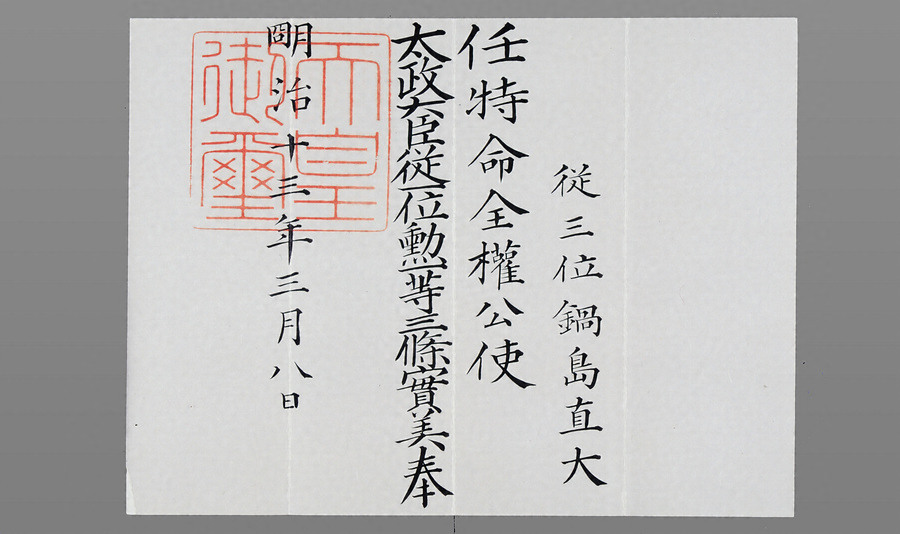 從三位鍋島直大
任特命全權公使
太政大臣從一位勲一等三條實美奉
朙治十三年三月八日
天皇
御璽